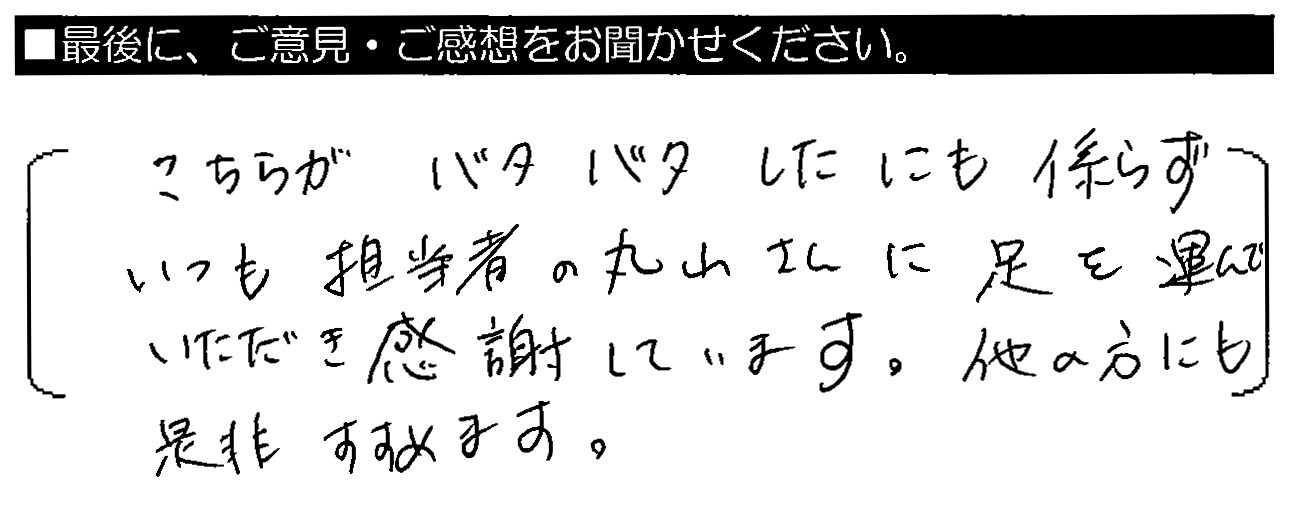 ■最後に、ご意見・ご感想をお聞かせください。
こちらが バタバタしたにも係らず
いつも担当者の丸山さんに足を運んで
いただき感謝しています。他の方にも
是非すすめます。